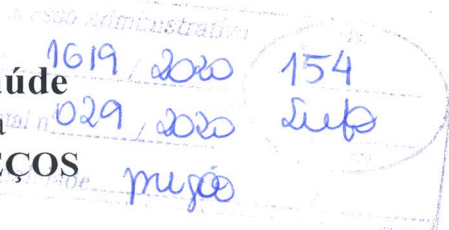 esso administrativo
1619 / 2020 154
úde
tal nº 029 / 2020
EÇOS pregão